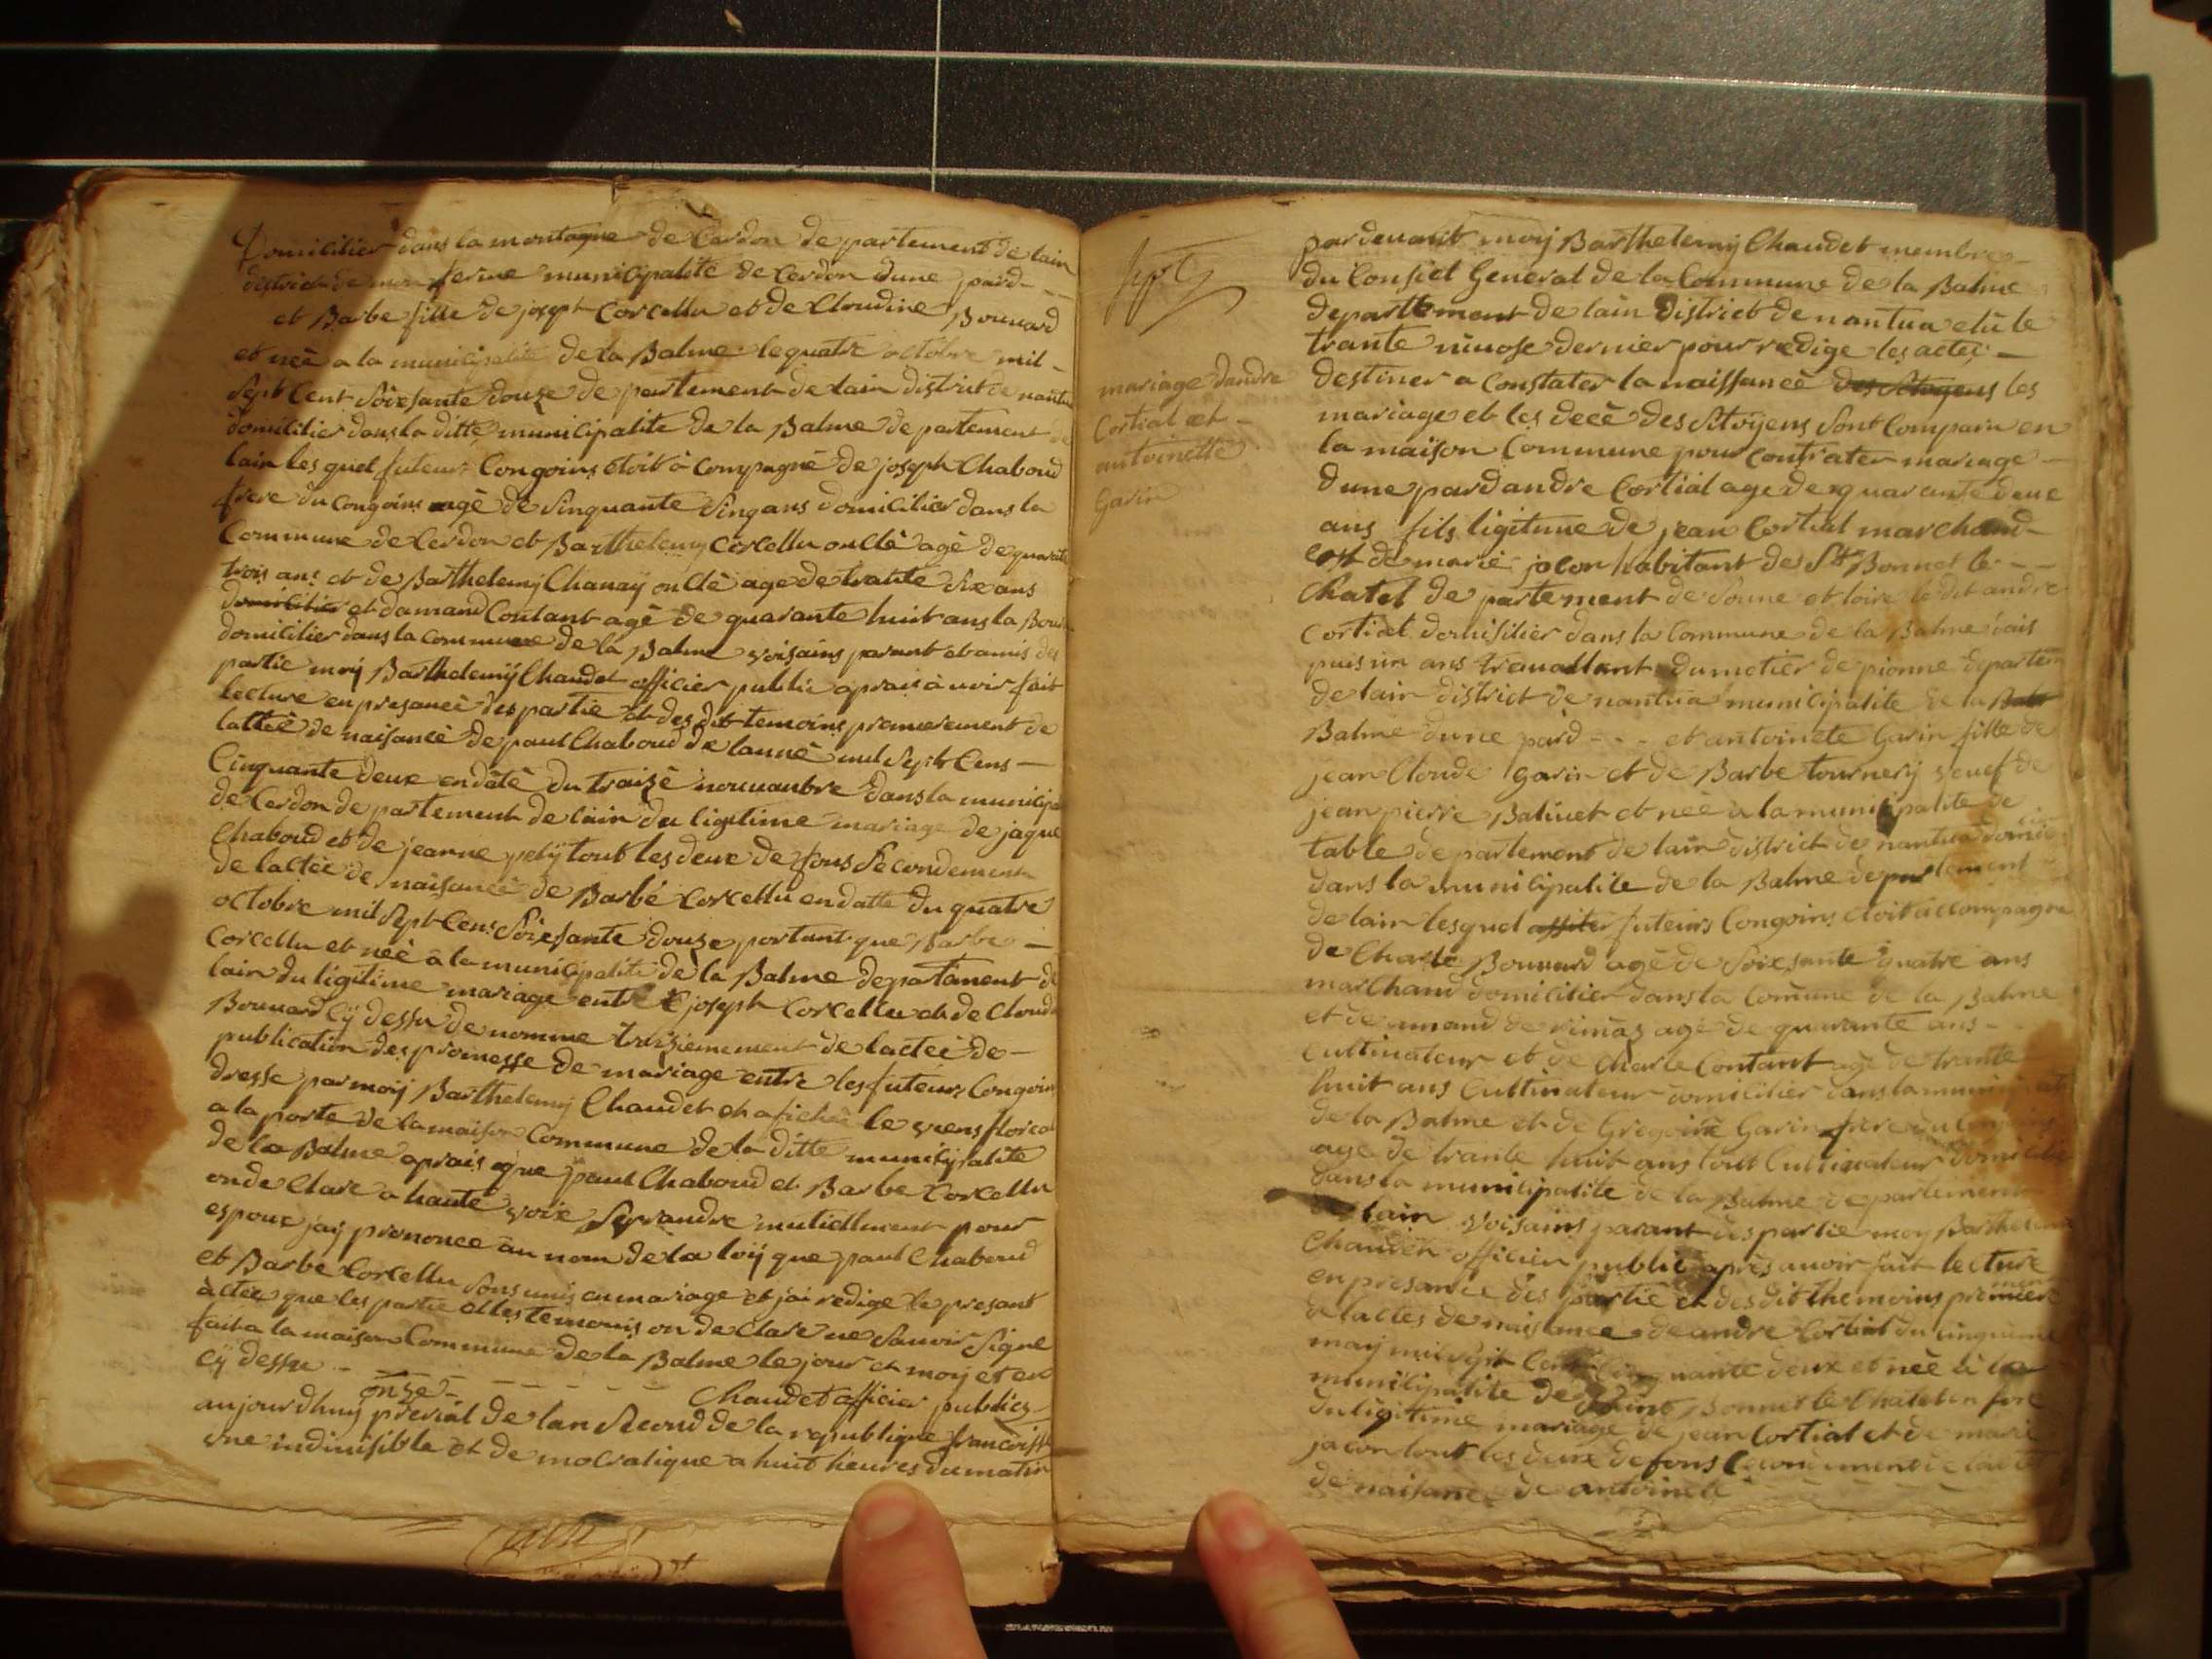 Domicilier dans la montagne de Cerdon departement de lain
district de mon ferme municipalité de Cerdon dune pard - -
et Barbe fille de joseph Corcellu et de Cloudine Bouuard
et neè a la municipalité de la Balme le quatre octobre mil -
Sept Cent Soixsante douze departement de lain district de nantua
domicilier dans la ditte municipalite de la Balme departement de
lain les quel futeurs Congoins etoit à Compagné de joseph Chaboud
frere du Congoins agé de Sinquante Sinq ans domicilier dans la
Commune de Cerdon et Barthelemy Corcellu oncle agé de quarante
trois ans et de Barthelemy Chanay oncle age de trante Six ans
domicilier et damand Contant agé de quarante huit ans la Bour
domicilier dans la commune de la Balme voisains parant et amis des
partie moij Barthelemij Chaudet officier public aprais àuoir fait
lecture en presance des partie et des dit temoins premierement de
lattee de naisance de paul Chaboud de lanneè mil Sept Cens -
Cinquante deux en dâté du traize nouuanbre dans la municipa
de Cerdon departement de lain du ligitime mariage de jaque
Chaboud et de jeanne pety tout les deux de fons Secondement
de lactee de naisance de Barbe Corcellu en datte du quatre
octobre mil Sept Cens Soixsante douze portant que Barbe -
Corcellu et neè à la municipalité de la Balme departament de
lain du ligitime mariage entre joseph Corcellu et de Cloud
Bouuard Cÿ dessu de nomme troizièmement de lacteè de -
publication des promesse de mariage entre les futeurs Congoins
dresse par moij Barthelemij Chaudet et afichée le viens floreal
a la porte de la maison Commune de la ditte municipalite
de la Balme aprais que paul Chaboud et Barbe Corcellu
on de Clare a hante voix Seprandre mutiellment pour
espoux jaij prononce au nom de la loij que paul Chaboud
et Barbe Corcellu Sons unis en mariage et jai redige le presant
àctee que les partie et les temouis on de Clare ne Sauoir Signe
fait a la maison Commune de la Balme le jour et moij et en
cÿ dessu - - - - - - - Chaudet officier publics
onze
aujourdhuy prerial de lan Second de la republique francoisse
vne indiuisible et de mocratique a huit heures du matin
mariage dandre
Cortial et -
antoinette
Garin
par deuant moij Barthelemij Chaudet membre -
du Consiel General de la Commune de la Balme
departtement de lain District de nantua elû le
trante niuose dernier pour redige les actes -
destiner a Constater la naissanceè des Sitoyens les
mariage et les deceè des Sitoÿens Sont Comparu en
la maison Commune pour contrater mariage -
dune pard andre Cortial age de quarante deux
ans fils ligitime de jean Cortial marchand -
est de marie jacon habitant de St Bonnet le - -
Chatel departement de Sonne et loire le dit andre
Cortial domisilier dans la Commune de la Balme dais
puis un ans trauallant du metier de pionne departem
de lain district de nantua municipalite de la Balt
Balme dune pard - - - et antoinete Garin fille de
jean Cloude Garin et de Barbe tournery veuef de
jean pierre Baliuet et neè a la municipalite de
table departement de lain district de nantua domici
dans la municipalite de la Balme departement
de lain lesquel assiter futeurs Congoins etoit accompagne
de Charle Bouuard agé de Soixsante quatre ans
marChand domicilier dans la Commune de la Balme
et de amand de rimaz agé de quarante ans -
Cultiuateur et de Charle Contant agé de trante
huit ans Cultiuateur domicilier dans la municipalite
de la Balme et de Gregoire Garin frere du Congoins
age de trante huit ans tout Cultiuateur domicilie
dans la municipalite de la Balme departement
de lain voisains parant des partie moy Barthelemi
Chaudet officier public après auoir fait lecture
en presance des partie et des dit themoins premiere
ment
de lactes de naissance de andre Cortial du cinquieme
maij mil Sept Cent Cinquante deux et neè à la
municipalite de Saint Bonnet le Chatel en fore
du ligitime mariage de jean Cortial et de marie
jacon tout les deux defons Secondement de lacte
de naisance de antoinete - - - -